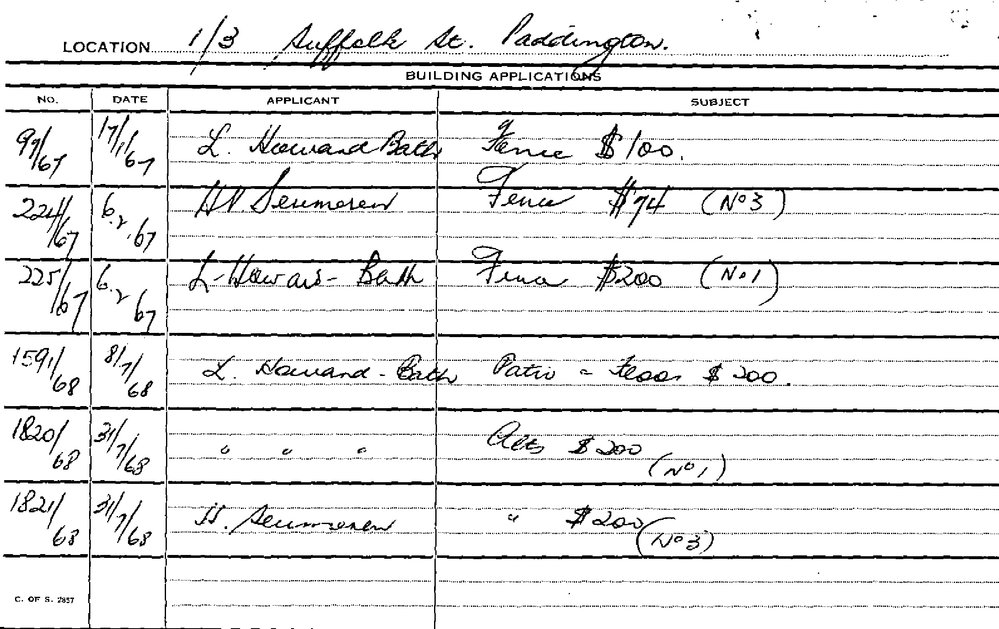 LOCATION 1/3 Suffolk St. Paddington.
BUILDING APPLICATIONS
NO. DATE APPLICANT SUBJECT
97/67 17/1/67 L. Howard Bath Fence $100.
224/67 6.2.67 H. Fence $74 (No 3)
225/67 6.2.67 L-Howard-Bath Fence $200 (No 1)
1591/68 8/7/68 L. Howard-Bath Patio = Floor $200.
1820/68 31/7/68 " " " Alts $200 (No 1)
1821/68 31/7/68 H. " $200 (No 3)
C. OF S. 7857